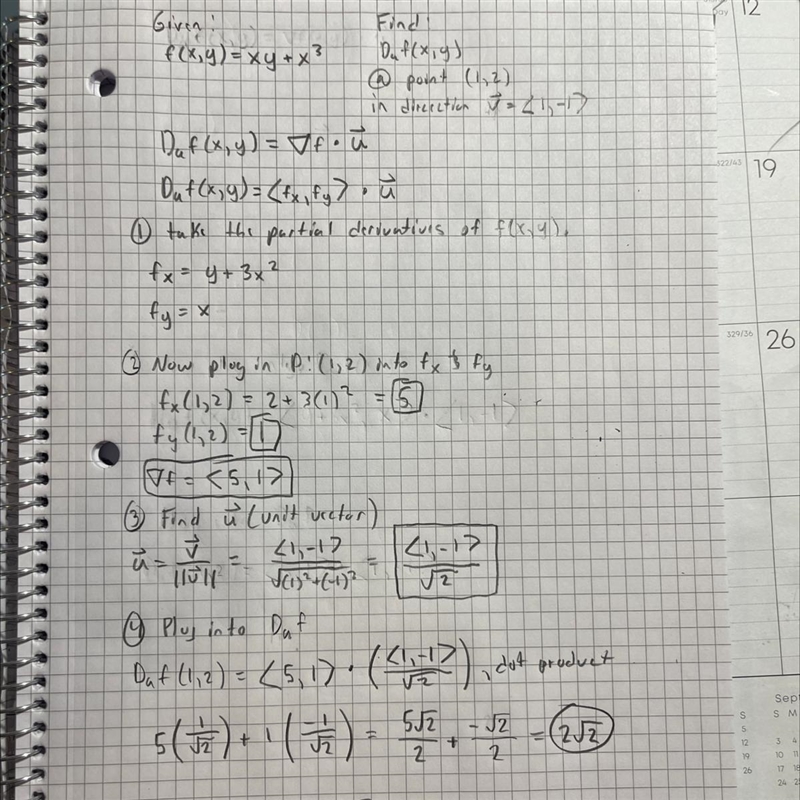 Given:
f(x,y) = xy + x³
Find:
Dᵤf(x,y)
@ point (1,2)
in direcection v⃗ = ⟨1,-1⟩
Dᵤf(x,y) = ∇f · u⃗
Dᵤf(x,y) = ⟨fₓ, fᵧ⟩ · u⃗
① take the partial derivatives of f(x,y).
fₓ = y + 3x²
fᵧ = x
② Now plug in P:(1,2) into fₓ & fᵧ
fₓ(1,2) = 2 + 3(1)² = 5
fᵧ(1,2) = 1
∇f = ⟨5,1⟩
③ Find u⃗ (unit vector)
u⃗ = v⃗/||v⃗|| = ⟨1,-1⟩/√((1)²+(-1)²) = ⟨1,-1⟩/√2
④ Plug into Dᵤf
Dᵤf(1,2) = ⟨5,1⟩ · (⟨1,-1⟩/√2), dot product
5(1/√2) + 1(-1/√2) = 5√2/2 + -√2/2 = 2√2
12
322/43 19
329/36 26
Sept
S S M
5
12 3 4
19 10 11
26 17 18
24 25